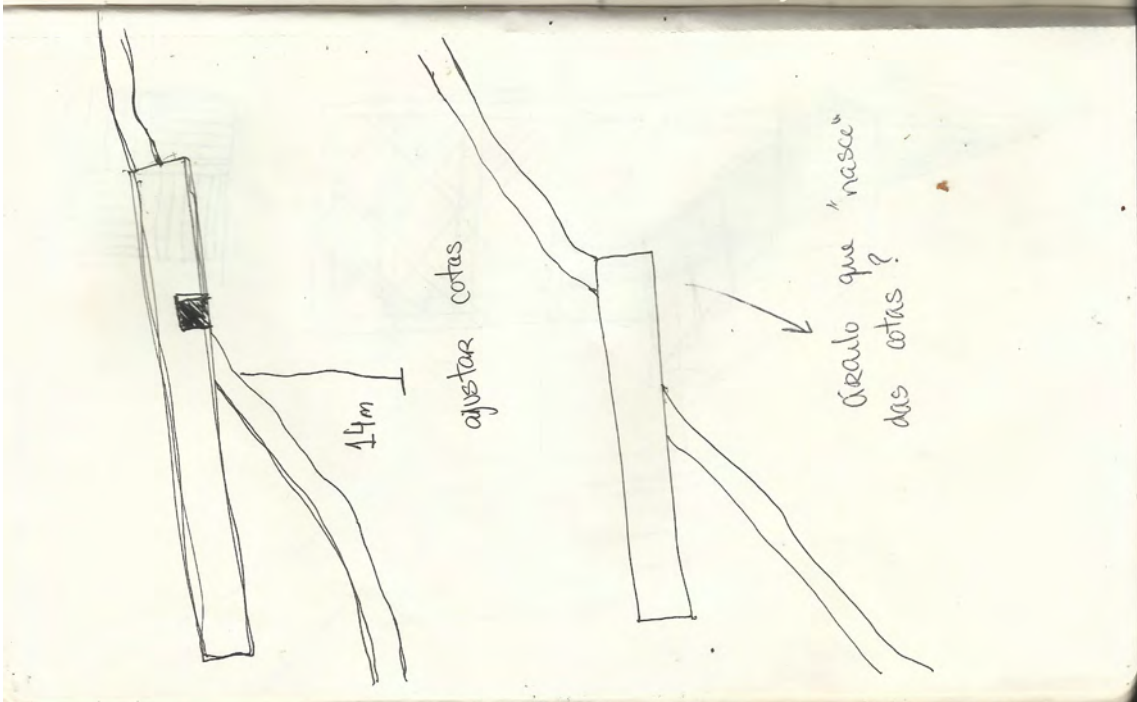 14m
ajustar cotas
círculo que "nasce"
das cotas ?